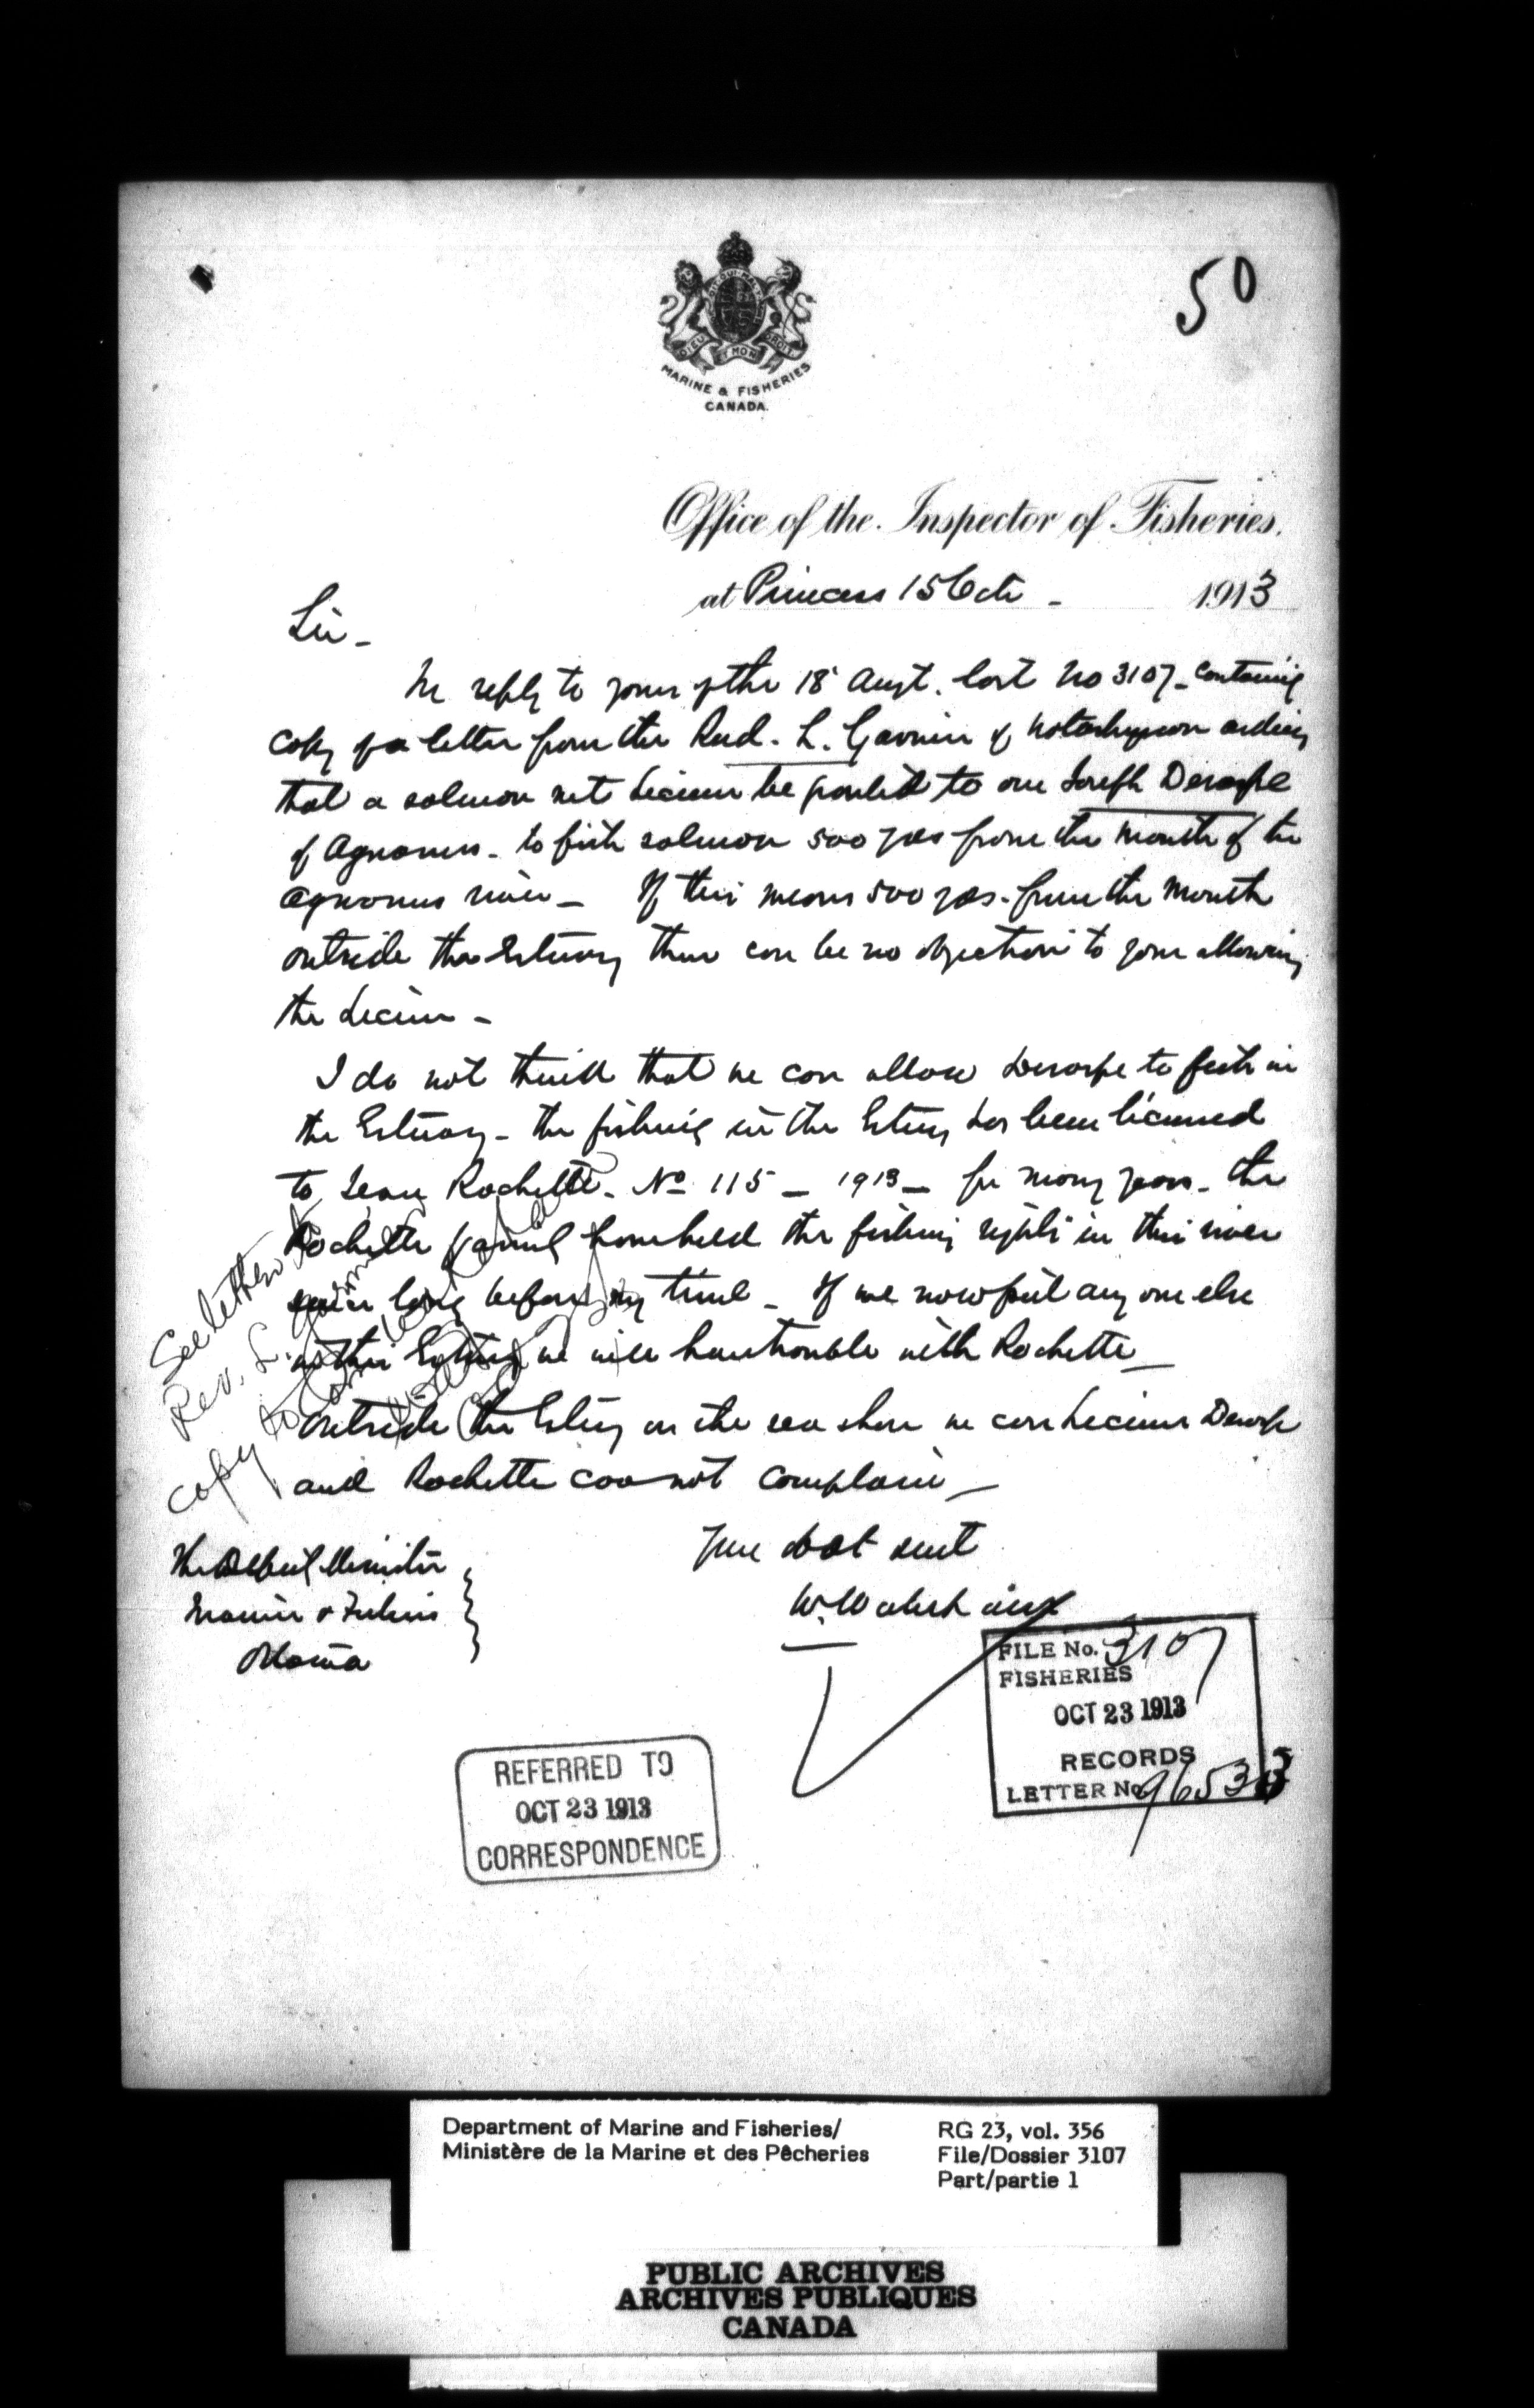 50
DIEU ET MON DROIT
MARINE & FISHERIES
CANADA.
Office of the Inspector of Fisheries.
at Princess 15 Octr - 1913
Sir -
In reply to yours of the 18 Augt. last No 3107 - containing
copy of a letter from the Revd. L. Garnier of Notashquan asking
that a salmon net License be granted to one Joseph Desrospe
of Aguanus - to fish salmon 500 yds from the mouth of the
Aguanus river - If this means 500 yds. from the mouth
outside the Estuary there can be no objection to your allowing
the License -
I do not think that we can allow Desrospe to fish in
the Estuary - the fishing in the Estuary has been licensed
to Jean Rochette - No 115 - 1913 - for many years - the
Rochette family have held the fishing rights in this river
long before my time - If we now put any one else
in this Estuary we will have trouble with Rochette -
outside the Estuary on the sea shore we can License Desrospe
and Rochette can not complain -
See letter
Rev. L. Garnier
copy to
Your obt servt
W. Wakeham
The Deput Minister
Marine & Fisheries
Ottawa
FILE No. 3107
FISHERIES
OCT 23 1913
RECORDS
LETTER No 96533
REFERRED TO
OCT 23 1913
CORRESPONDENCE
Department of Marine and Fisheries/
Ministère de la Marine et des Pêcheries
RG 23, vol. 356
File/Dossier 3107
Part/partie 1
PUBLIC ARCHIVES
ARCHIVES PUBLIQUES
CANADA